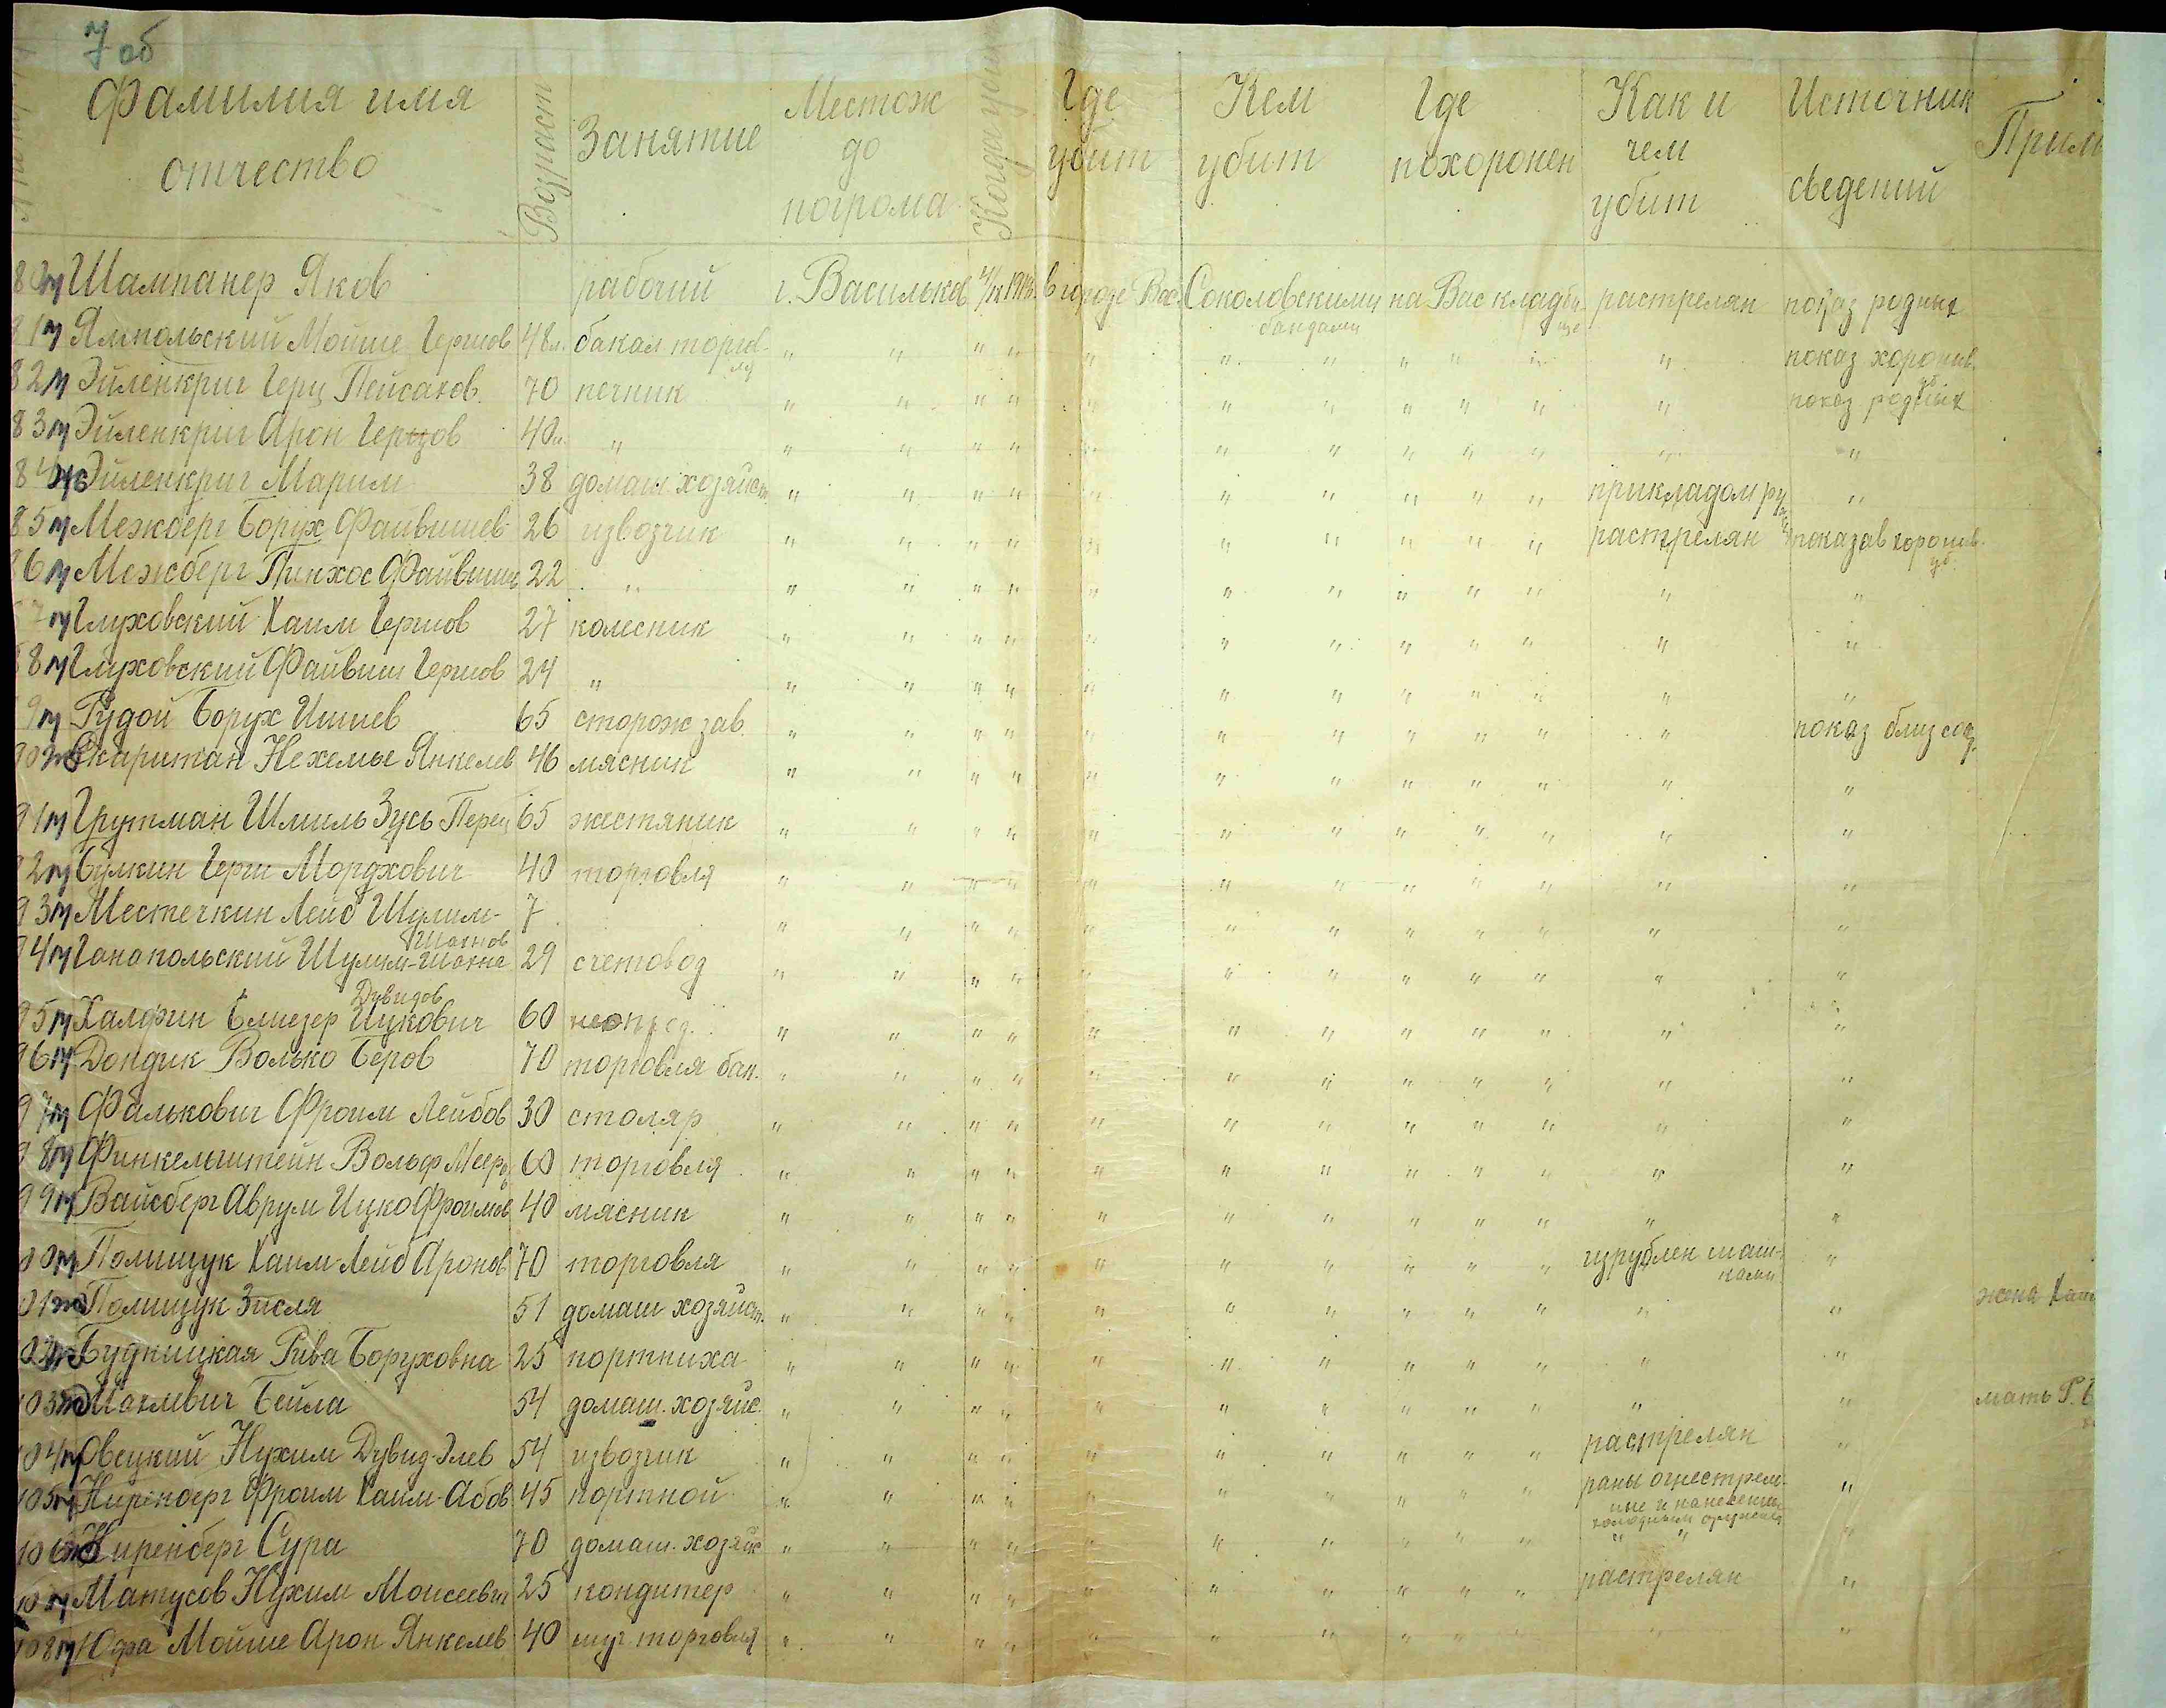 7 об
Фамилия имя отчество Возраст Занятие Местож до погрома Когда Где убит Кем убит Где похоронен Как и чем убит Источник сведений Прим
80 м Шампанер Яков рабочий г. Васильков 1919 в городе Вас. Соколовскими бандами на Вас кладбище растрелян показ родных
81 м Ямпольский Мойше Гершов 48 л. бакал. торговля " " " " " " " " " " " показ хоронив.
82 м Эйленкриг Герц Пейсахов. 70 печник " " " " " " " " " " " показ родных
83 м Эйленкриг Арон Герцов 40 л. " " " " " " " " " " " " "
84 ж Эйленкриг Марим 38 домаш хозяйст " " " " " " " " " " прикладом "
85 м Межберг Борух Файвишев 26 извозчик " " " " " " " " " " растрелян показав хоронив.
86 м Межберг Пинхос Файвишев 22 " " " " " " " " " " " " "
87 м Глуховский Хаим Гершов 27 колесник " " " " " " " " " " " "
88 м Глуховский Файвиш Гершов 24 " " " " " " " " " " " " "
89 м Рудой Борух Ишиев 65 сторож зав. " " " " " " " " " " " показ близ сос
90 Скаритан Нехемье Янкелев 46 мясник " " " " " " " " " " " "
91 м Грутман Шмиль Зусь Перец 65 жестяник " " " " " " " " " " " "
92 м Булкин Герш Мордхович 40 торговля " " " " " " " " " " " "
93 м Местечкин Лейб Шулим-Шахнов 7 " " " " " " " " " " " "
94 м Ганапольский Шулим-Шахна Дувидов 29 счетовод " " " " " " " " " " " "
95 м Халфин Елиезер Ицкович 60 неопред. " " " " " " " " " " " "
96 м Дондик Волько Беров 70 торговля бак. " " " " " " " " " " " "
97 м Фалькович Фроим Лейбов 30 столяр " " " " " " " " " " " "
98 м Финкельштейн Вольф Меер 60 торговля " " " " " " " " " " " "
99 м Вайсберг Аврум Ицко Фроимов 40 мясник " " " " " " " " " " " "
100 м Полищук Хаим-Лейб Аронов 70 торговля " " " " " " " " " " изрублен шашками "
101 ж Полищук Зисля 51 домаш хозяйст. " " " " " " " " " " " " жена Хаим
102 ж Будницкая Рива Боруховна 25 портниха " " " " " " " " " " " "
103 ж Бейла 54 домаш. хозяйс. " " " " " " " " " " " " мать Р. Б
104 м Овсцкий Нухим Дувид-Элев 54 извозчик " " " " " " " " " " растрелян "
105 м Ниренберг Фроим Хаим-Абов 45 портной " " " " " " " " " " раны огнестрельные и нанесенны холодным оружием "
106 ж Ниренберг Сура 70 домаш. хозяйс " " " " " " " " " " " " "
107 м Матусов Нухим Моисеевич 25 кондитер " " " " " " " " " " растрелян "
108 м Юфа Мойше Арон Янкелев 40 торговля " " " " " " " " " " " "